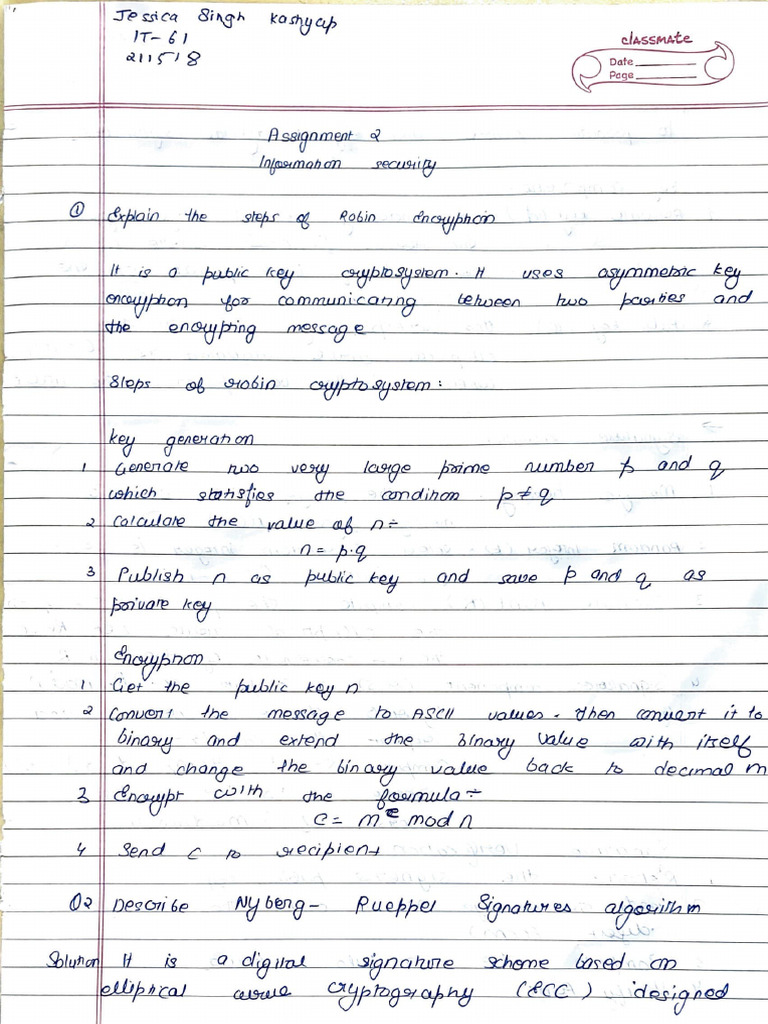 Jessica Singh Kashyap
IT-61
211518
classmate
Date
Page
Assignment 2
Information security
① Explain the steps of Robin Encryption
It is a public key cryptosystem. It uses asymmetric key
encryption for communicating between two parties and
the encrypting message
Steps of robin cryptosystem:
key generation
1 Generate two very large prime number p and q
which statisfies the condition p ≠ q
2 Calculate the value of n÷
n = p.q
3 Publish n as public key and save p and q as
private key
Encryption
1 Get the public key n
2 Convert the message to ASCII values. Then convert it to
binary and extend the binary value with itself
and change the binary value back to decimal m
3 Encrypt with the formula÷
C = m^e mod n
4 Send C to recipient
Q2 Describe Nyberg- Rueppel Signatures algorithm
Solution It is a digital signature scheme based on
elliptical curve cryptography (ECC) designed